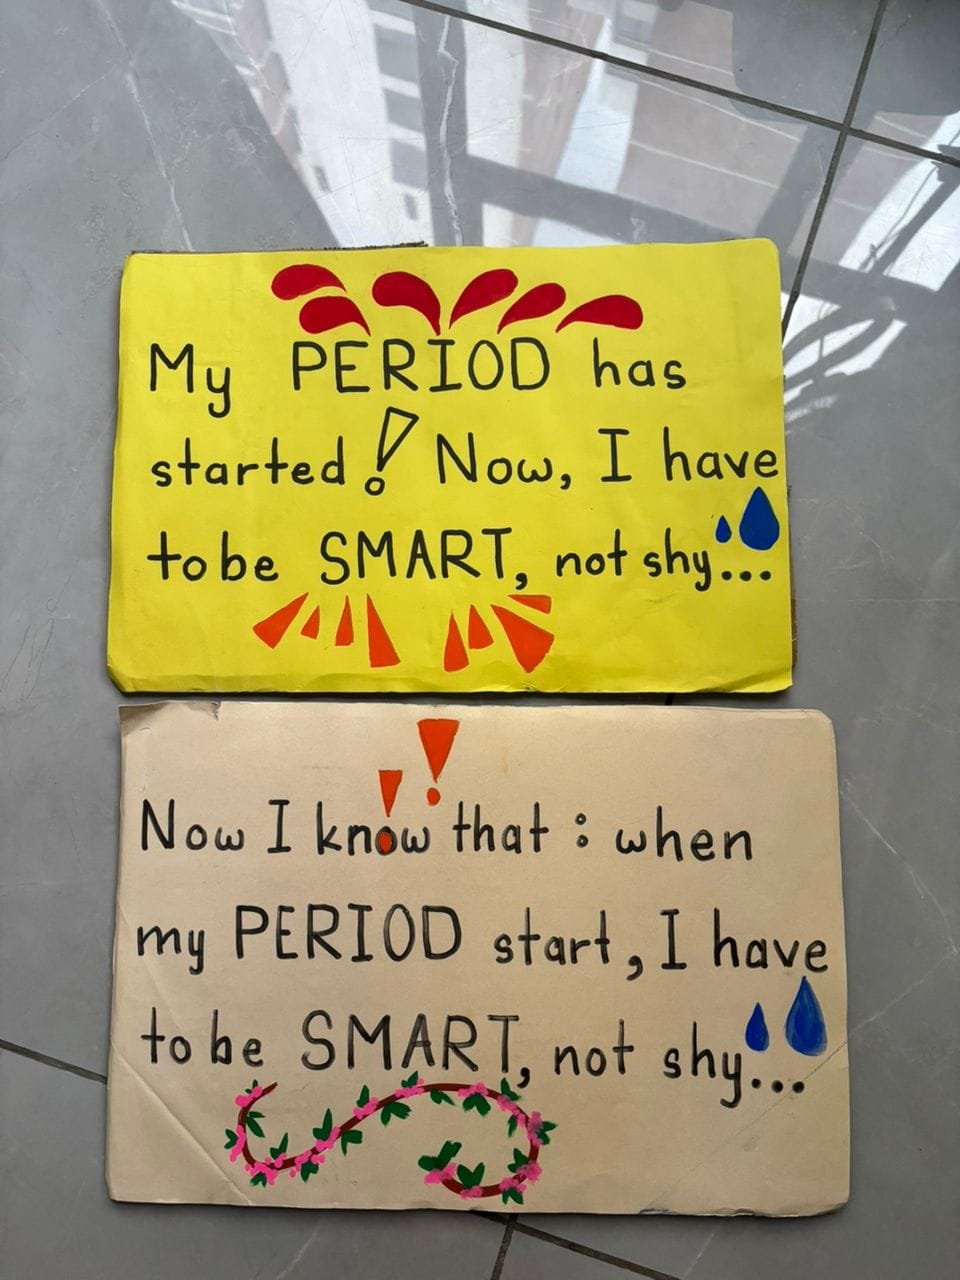 My PERIOD has
started! Now, I have
to be SMART, not shy...
Now I know that : when
my PERIOD start, I have
to be SMART, not shy...